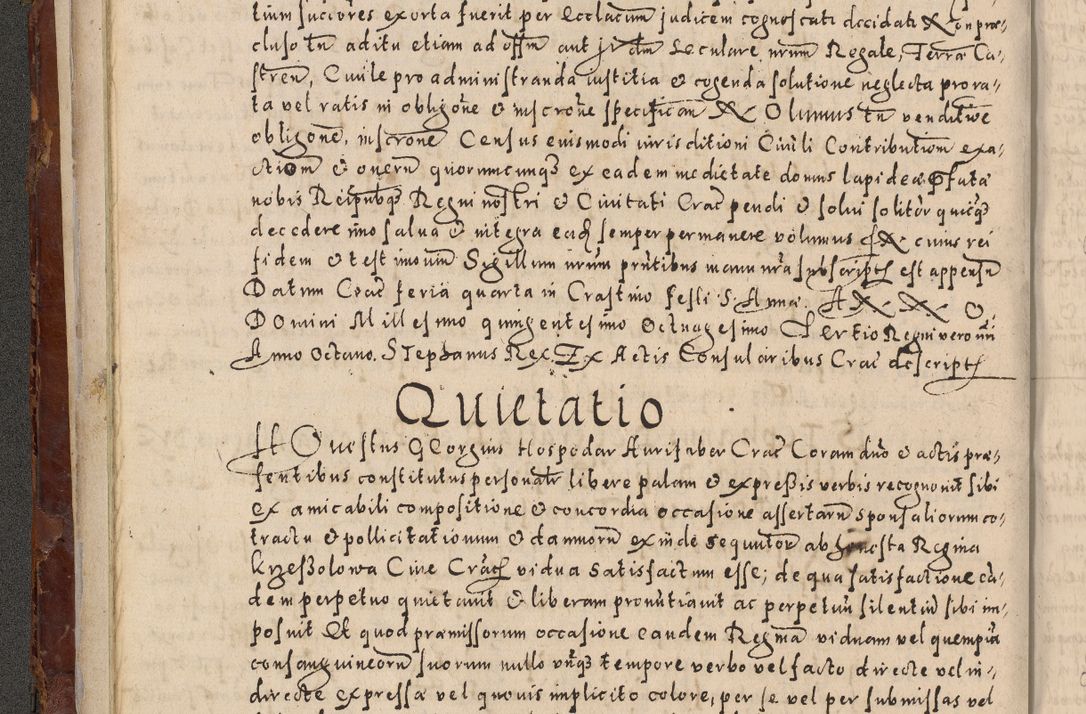 tium succores exorta fuerit per Ecclacum judicem cognoscati decidati Non præ-
cluso tn aditu etiam ad offm aut judm Seculare nrum Regale, Terræ Ca-
stren, Ciuile pro administranda iustitia et cogenda solutione neglecta prora-
ta vel ratis in obligone et inscrone specifican Volumus tn venditioe
obligone, inscrone Census eiusmodi iurisditioni Ciuili Contributionm exa-
ctionm et onerum quorumcunqs ex eadem medietate domus lapideæ pfata
nobis Reipubqs Regni nostri et Ciuitati Crac pendi et solui solitor quicqs
decedere imo salua et integra eadq semper permanere volumus In cuius rei
fidem et testimonium Sigillum nrum pntibus manu nra subscriptis est appensum
Datum Crac feria quarta in Crastino Festi S. Annæ. Anno
Domini Millesimo quingentesimo octuagesimo Tertio Regni vero nri
Anno Octauo. Stephanus Rex. Ex Actis Consularibus Crac descriptis
Quietatio
Honestus Georgius Hospodar Aurifaber Crac Coram dno et actis præ-
sentibus constitutus personalr libere palam et expreßis verbis recognouit sibi
ex amicabili compositione et concordia occasione assertarum sponsaliorum co-
tractu et pollicitationum et damnorum exinde sequutor ab honesta Regina
Krzeßolowa Ciue Crac vidua satisfactum esse; de qua satisfactione ea-
dem perpetuo quietauit et liberam pronutiauit ac perpetuu silentiu sibi im-
posuit Et quod præmissorum occasione eandem Reginam viduam vel quempia
consanguineorum suorum nullo vnqs tempore verbo vel facto directe vel in-
directe expressæ vel quouis implicito colore, per se vel per submissas vel